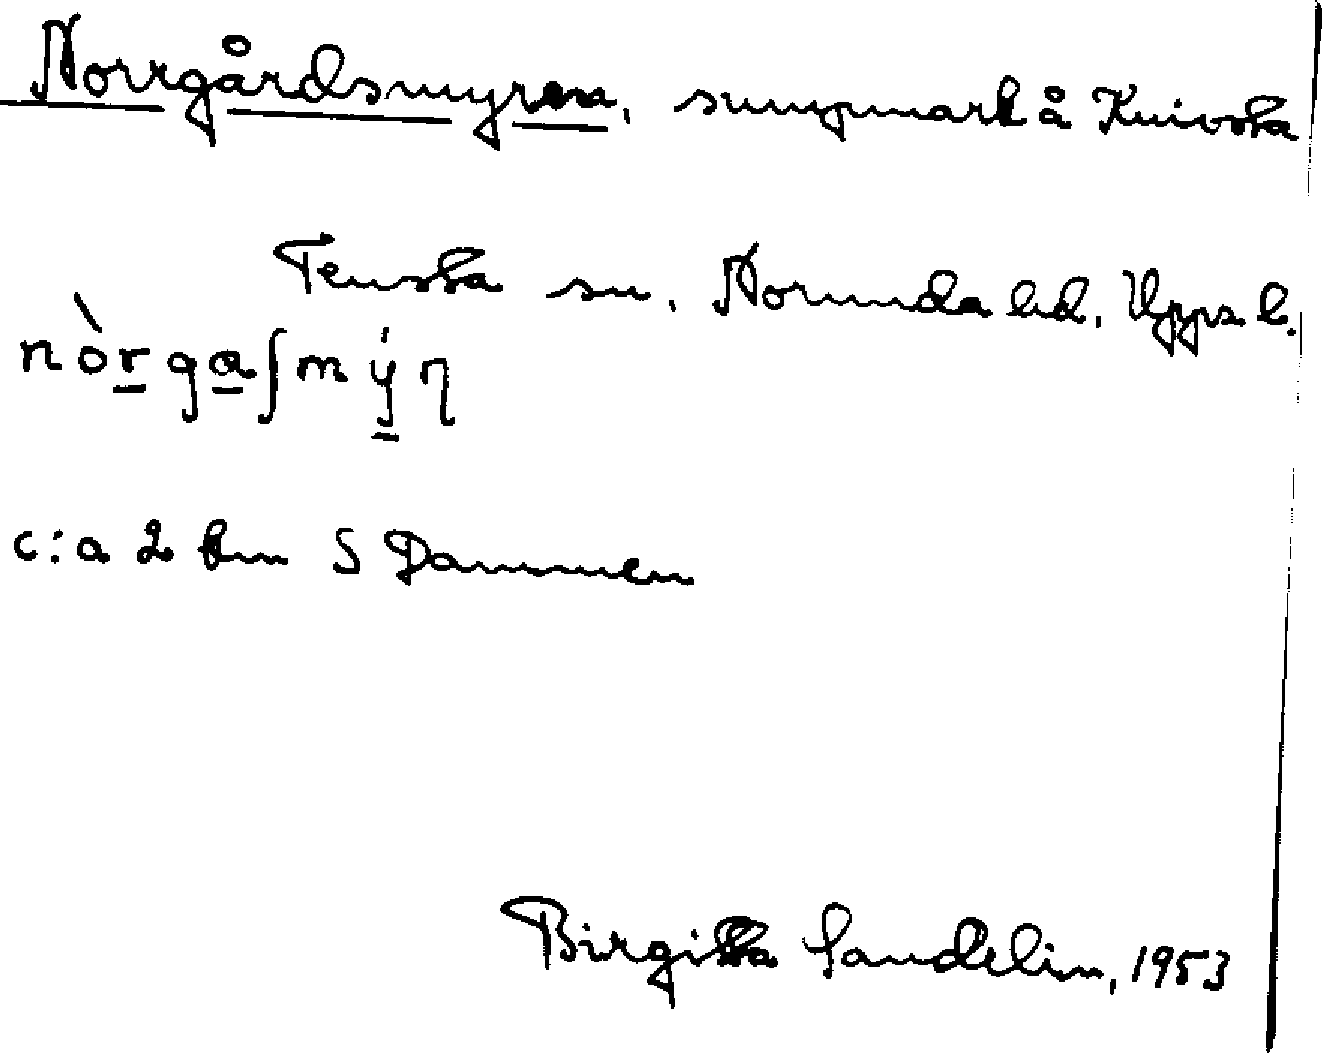 Norrgårdsmyren, sumpmark å Kuivsta
Tensta sn. Norunda hd. Upps l.
nòrgaʃmýn
c:a 2 km S Dammen
Birgitta Sandelin, 1953